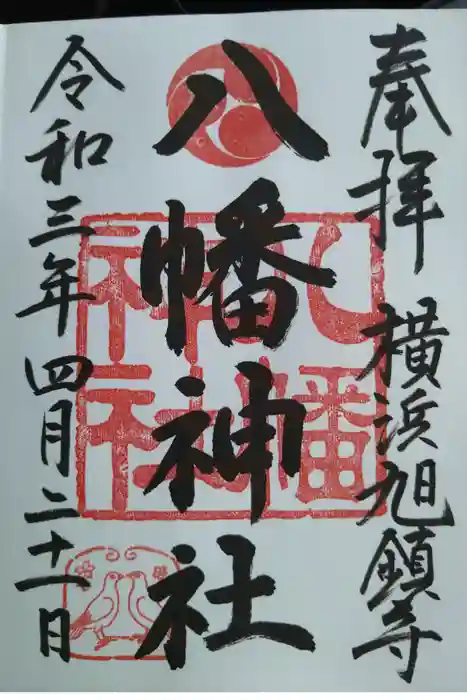 奉拝 横浜旭鎮守
八幡神社
八幡
神社
令和三年四月二十一日